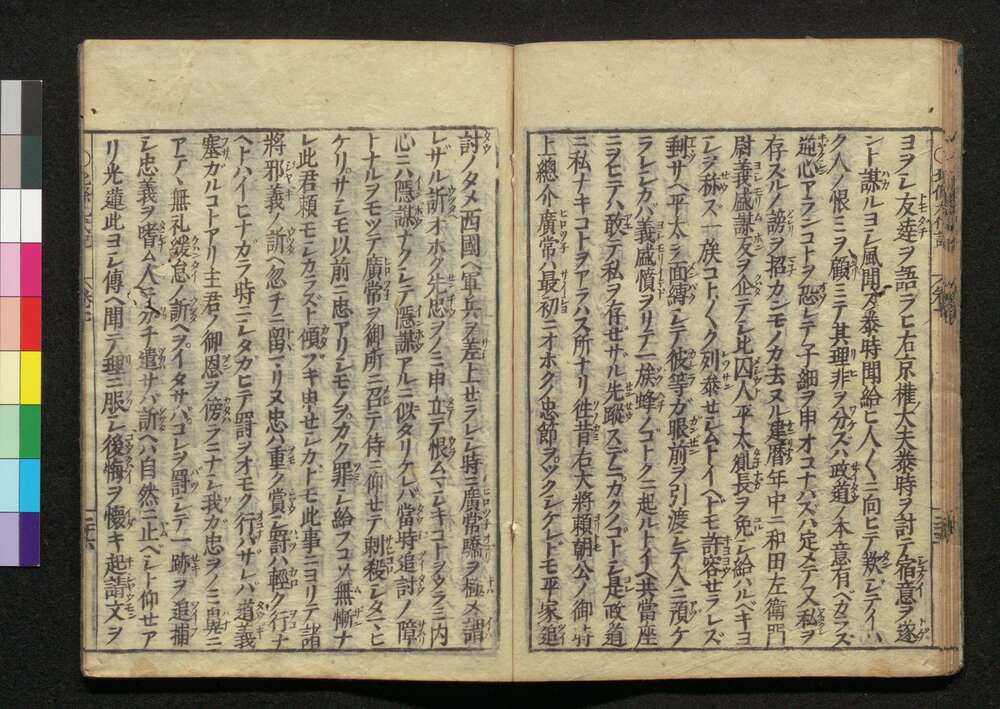 ヨラレ友達ヲ語ラヒ右京權大夫泰時ヲ討テ宿意ヲ遂
ント謀ルヨレ風聞ス泰時聞給ヒ人〱ニ向ヒテ歎レテイハ
ク人ノ恨ミヲ顧ミテ其理非ヲ分ズハ政道ノ本意有ベカラズ
逆心アランコトヲ恐レテ子細ヲ申オコナハズハ定メテ又私ヲ
存スルノ謗ヲ招カンモノカ去ヌル建曆年中ニ和田左衞門
尉義盛謀友ヲ企テレ此囚人平太胤長ヲ免レ給ハルベキヨ
レヲ称ズ一族コト〲ク列參セレムトイヘドモ許容セラレズ
郵サヘ平太ヲ面縛レテ彼等ガ眼前ヲ引渡レテ人ニ預ケ
ラレレカバ義盛憤ヲリテ一族蜂ノゴトクニ起ルトイヘ共當座
ニヲヒテハ敢テ私ヲ存せサル先蹤スデニカクノゴトレ是政道
ニ私ナキコトヲアラハス所ナリ往昔右大將頼朝公ノ御時
上總介廣常ハ最初ニオホク忠節ヲツクレケレドモ平家追
討ノタメ西國ヘ軍兵ヲ差上せラレレ時ニ廣常驕ヲ極メ謂
レザル訴オホク先忠ヲノミ申立テ恨ムマレキコトヲウラミ内
心ニハ隠謀ナクレテ隠謀アルニ似タリケレバ當時追討ノ障
トナルヲモツテ廣常ヲ御所ニ召テ侍ニ仰せテ刺殺レタマヒ
ケリサレレモ以前ニ忠アリレモノヲカク罪レ給フコソ無慚ナ
レ此君頼モレカラズト傾ブキ申せレカドモ此事ニヨリテ諸
將邪義ノ訴ヘ忽チニ留マリヌ忠ハ重ク賞レ罸ハ輕ク行ナ
ヘトハイヒナガラ時ニレタカヒテ罸ヲオモク行ハサレバ道義
塞ガルコトアリ主君ノ御恩ヲ傍ラニナレ我カ忠ヲノミ與ニ
アテヽ無礼緩怠ノ訴ヘヲイタサバコレヲ罸レテ一跡ヲ追捕
レ忠義ヲ嗜ム人ニ分チ遣サバ訴ヘハ自然ニ止ベレト仰せア
リ光蓮此ヨレ傳ヘ聞テ理ニ服レ後悔ヲ懷キ起請文ヲ